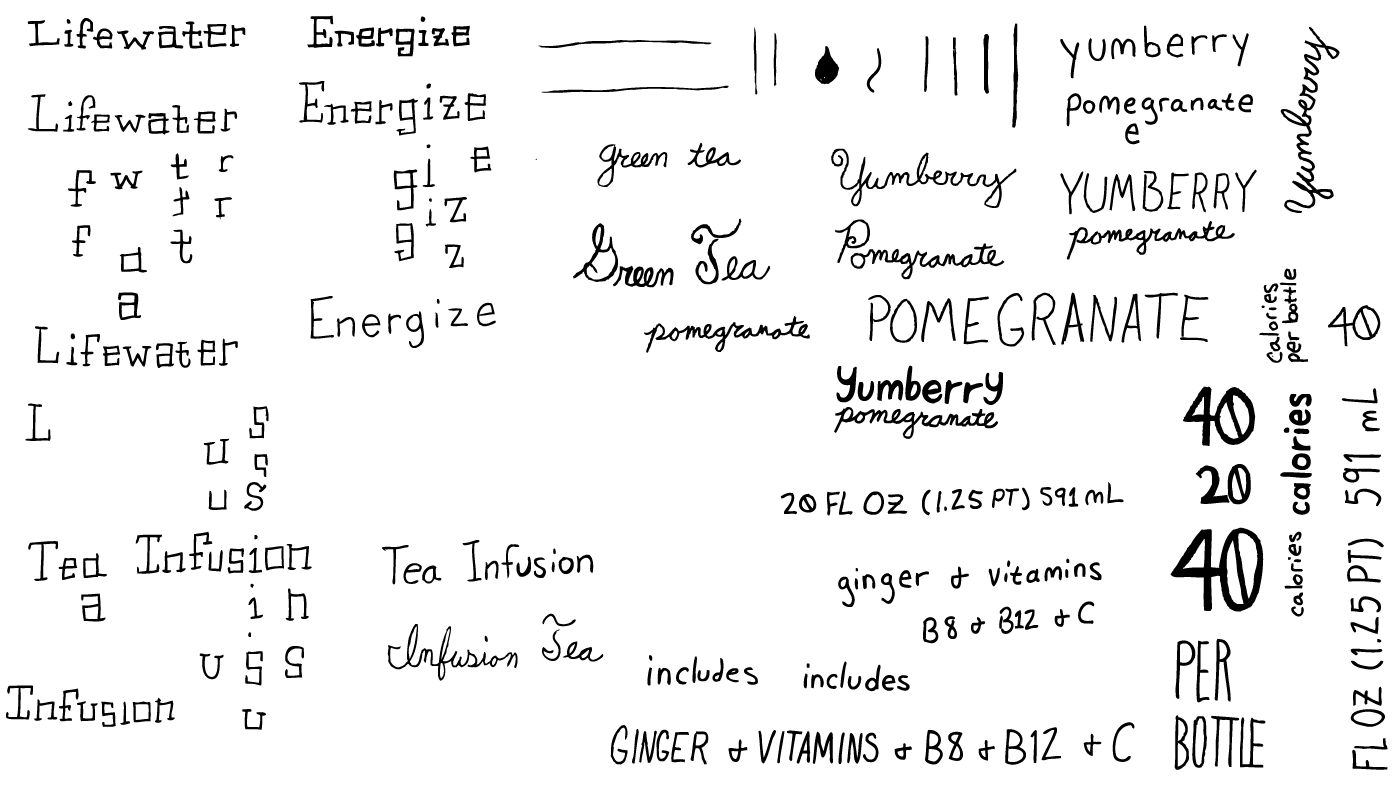 Lifewater
Energize
Lifewater
Energize
f w t r
t r
f a t
a
g i e
i z
g z
Lifewater
Energize
L
s
u s
u s
Tea Infusion
a i n
u s s
i
u
Infusion
Tea Infusion
Infusion Tea
green tea
Green Tea
pomegranate
yumberry
pomegranate
e
Yumberry
Yumberry
YUMBERRY
pomegranate
Pomegranate
POMEGRANATE
Yumberry
pomegranate
calories
per bottle
40
40
calories
20
20 FL OZ (1.25 PT) 591 mL
40
calories
ginger & vitamins
B8 & B12 & C
includes includes
PER
BOTTLE
GINGER & VITAMINS & B8 & B12 & C
FL OZ (1.25 PT) 591 mL